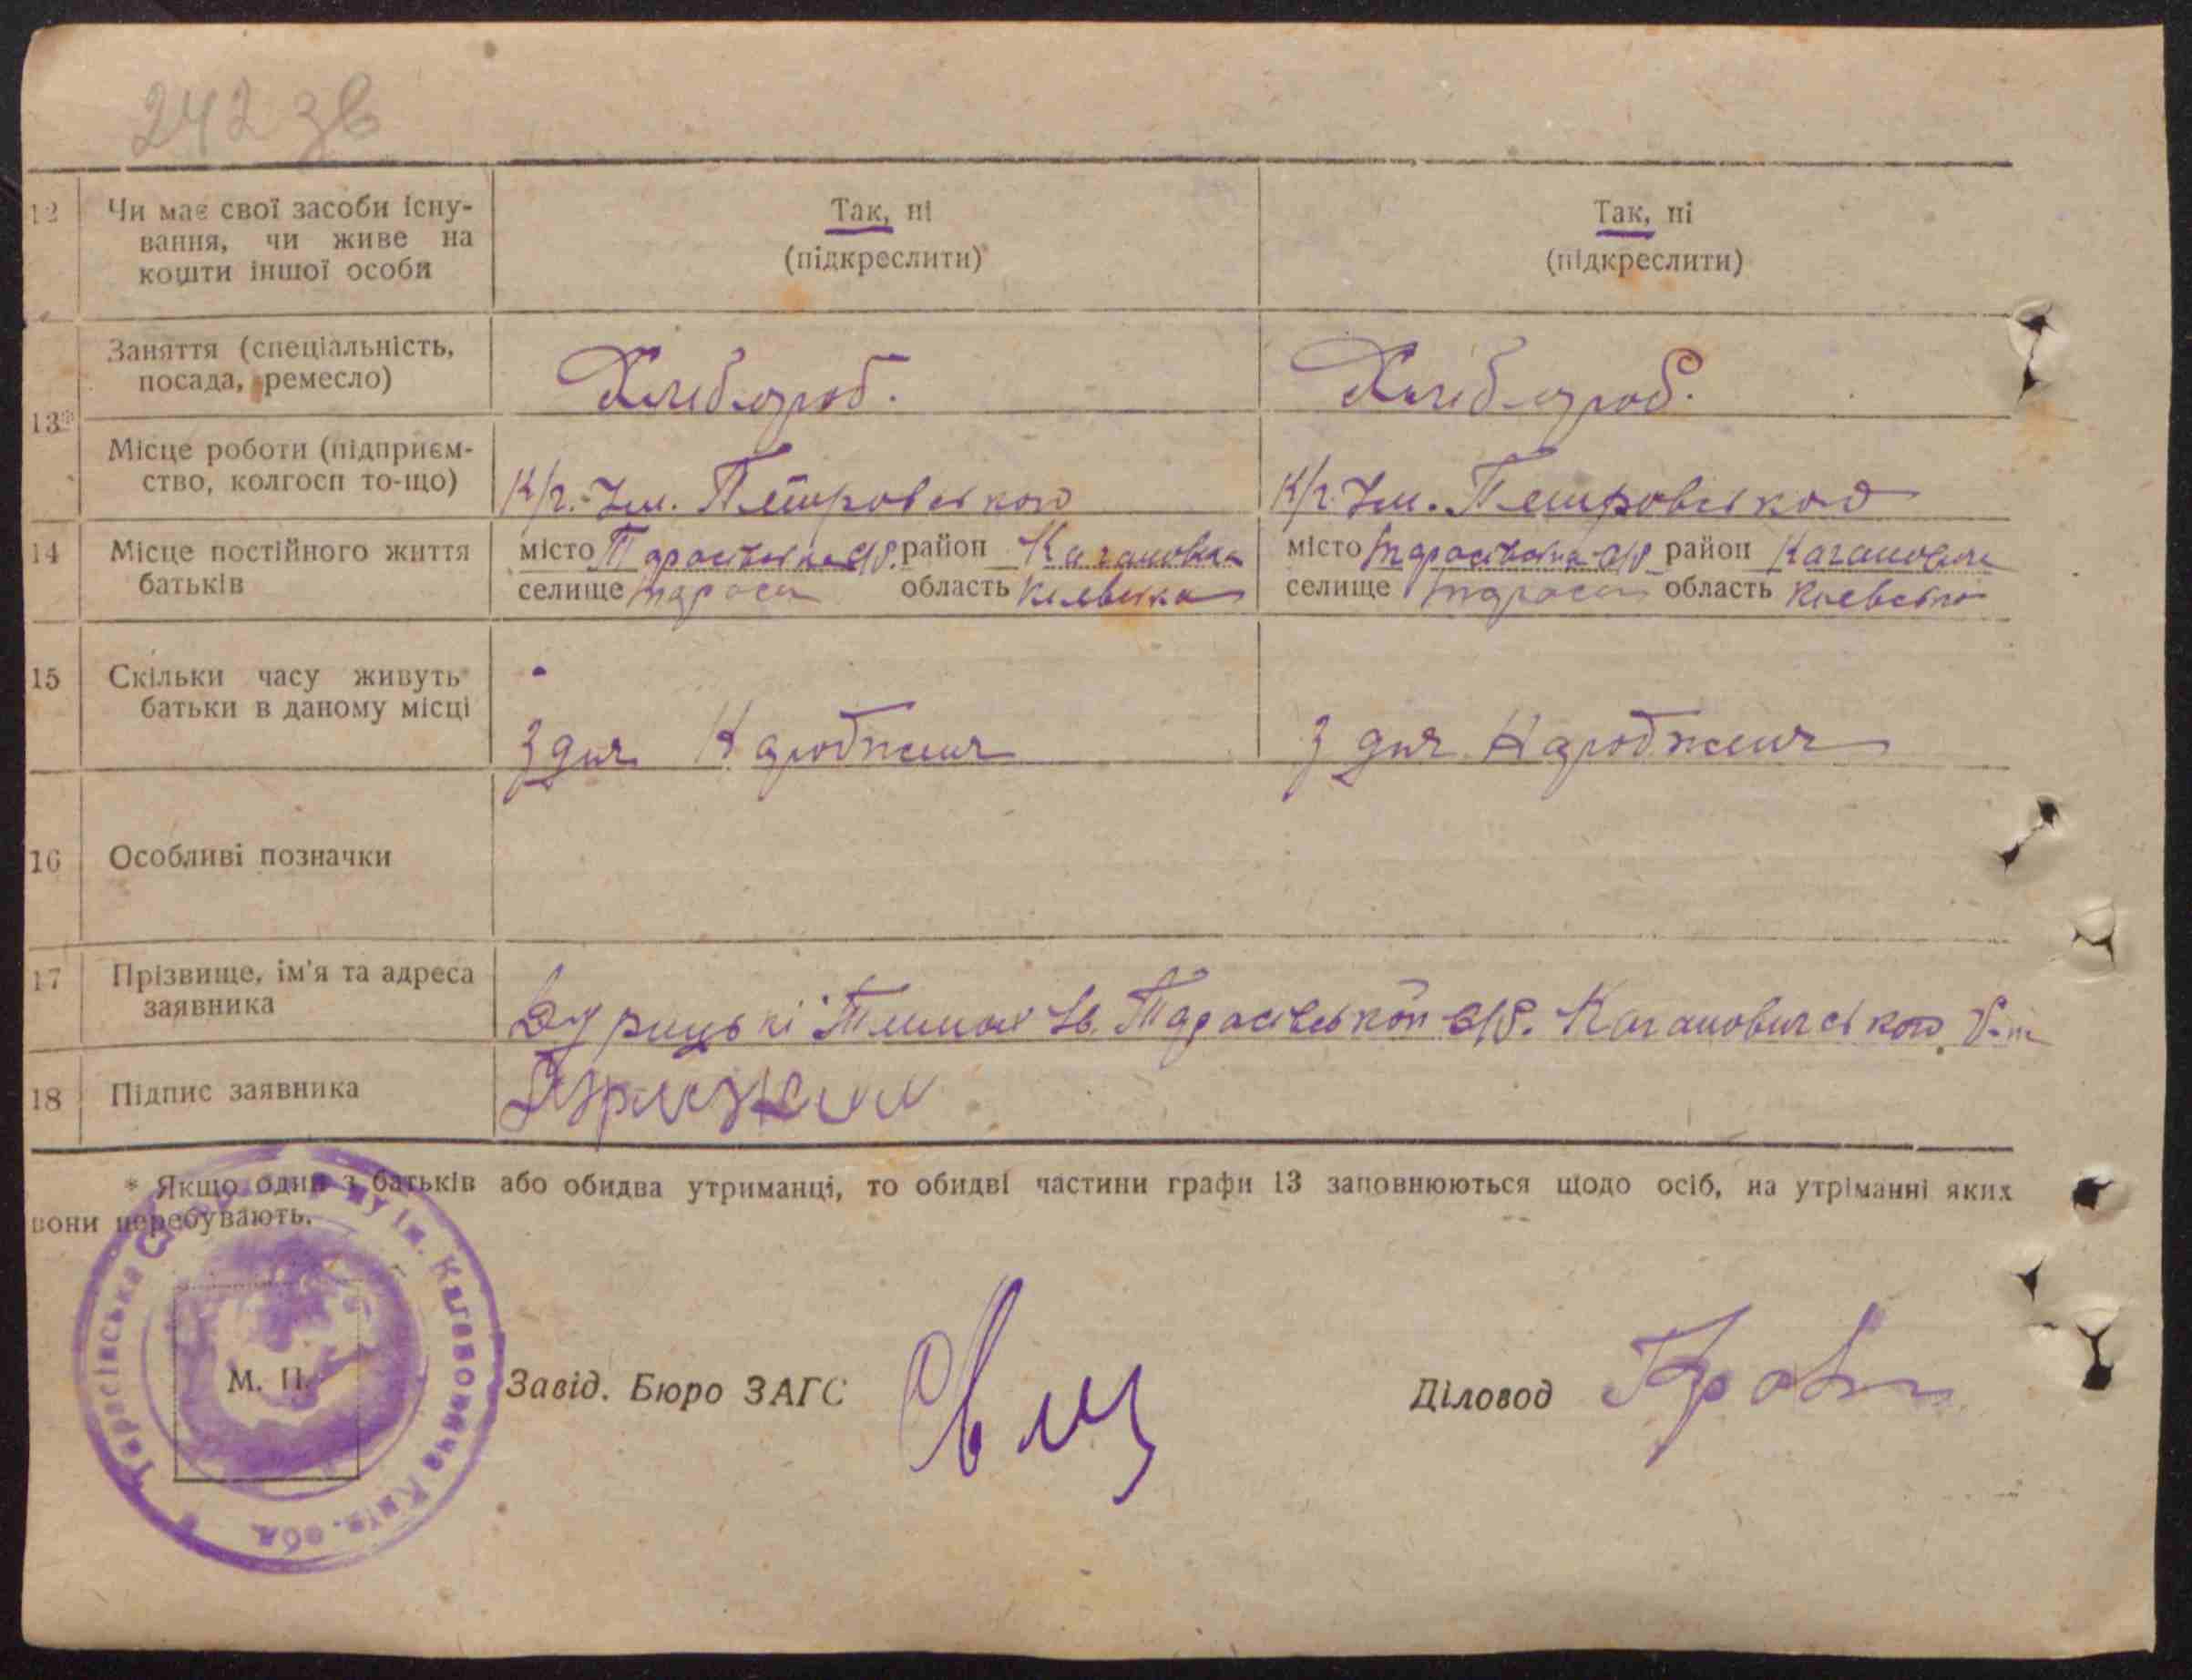 242 зв
12 Чи має свої засоби існу- Так, ні Так, ні
вання, чи живе на (підкреслити) (підкреслити)
кошти іншої особи
Заняття (спеціальність, Хлебороб. Хлібороб.
посада, ремесло)
13*
Місце роботи (підприєм- К/г. Ім. Петровського К/г. Ім. Петровського
ство, колгосп то-що)
14 Місце постійного життя місто Тарасівська с/р. район місто Тарасівська с/р район
батьків селище Тараси область Киевська селище Тараси область Киевська
15 Скільки часу живуть
батьки в даному місці з дня Народження з дня Народження
16 Особливі позначки
17 Прізвище, ім'я та адреса
заявника Тимох Ів. Тарасівськой с/р. Кагановичського р-ну
18 Підпис заявника
* Якщо один з батьків або обидва утриманці, то обидві частини графи 13 заповнюються щодо осіб, на утріманні яких
вони перебувають.
Тарасівська ім. Кагановича Київ. обл.
М. П.
Завід. Бюро ЗАГС Діловод